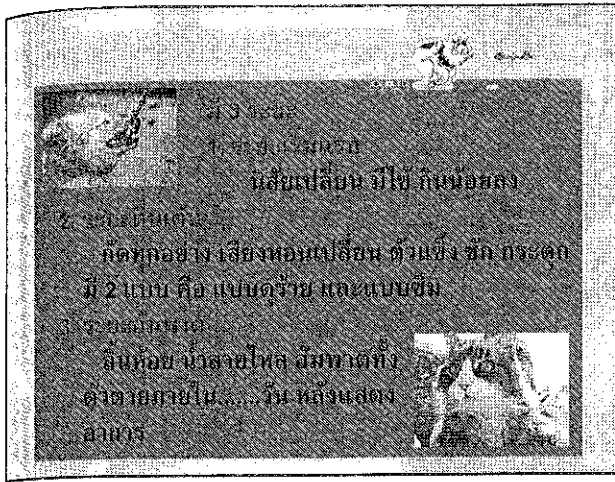 มี 3 ระยะ
1. ระยะเริ่มแรก
นิสัยเปลี่ยน มีไข้ กินน้อยลง
2. ระยะตื่นเต้น
กัดทุกอย่าง เสียงหอนเปลี่ยน ตัวแข็ง ชัก กระตุก
มี 2 แบบ คือ แบบดุร้าย และแบบซึม
3. ระยะอัมพาต
ลิ้นห้อย น้ำลายไหล อัมพาตทั้ง
ตัวตายภายใน.......วัน หลังแสดง
อาการ